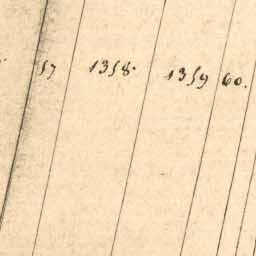 57 1358. 1359 60.